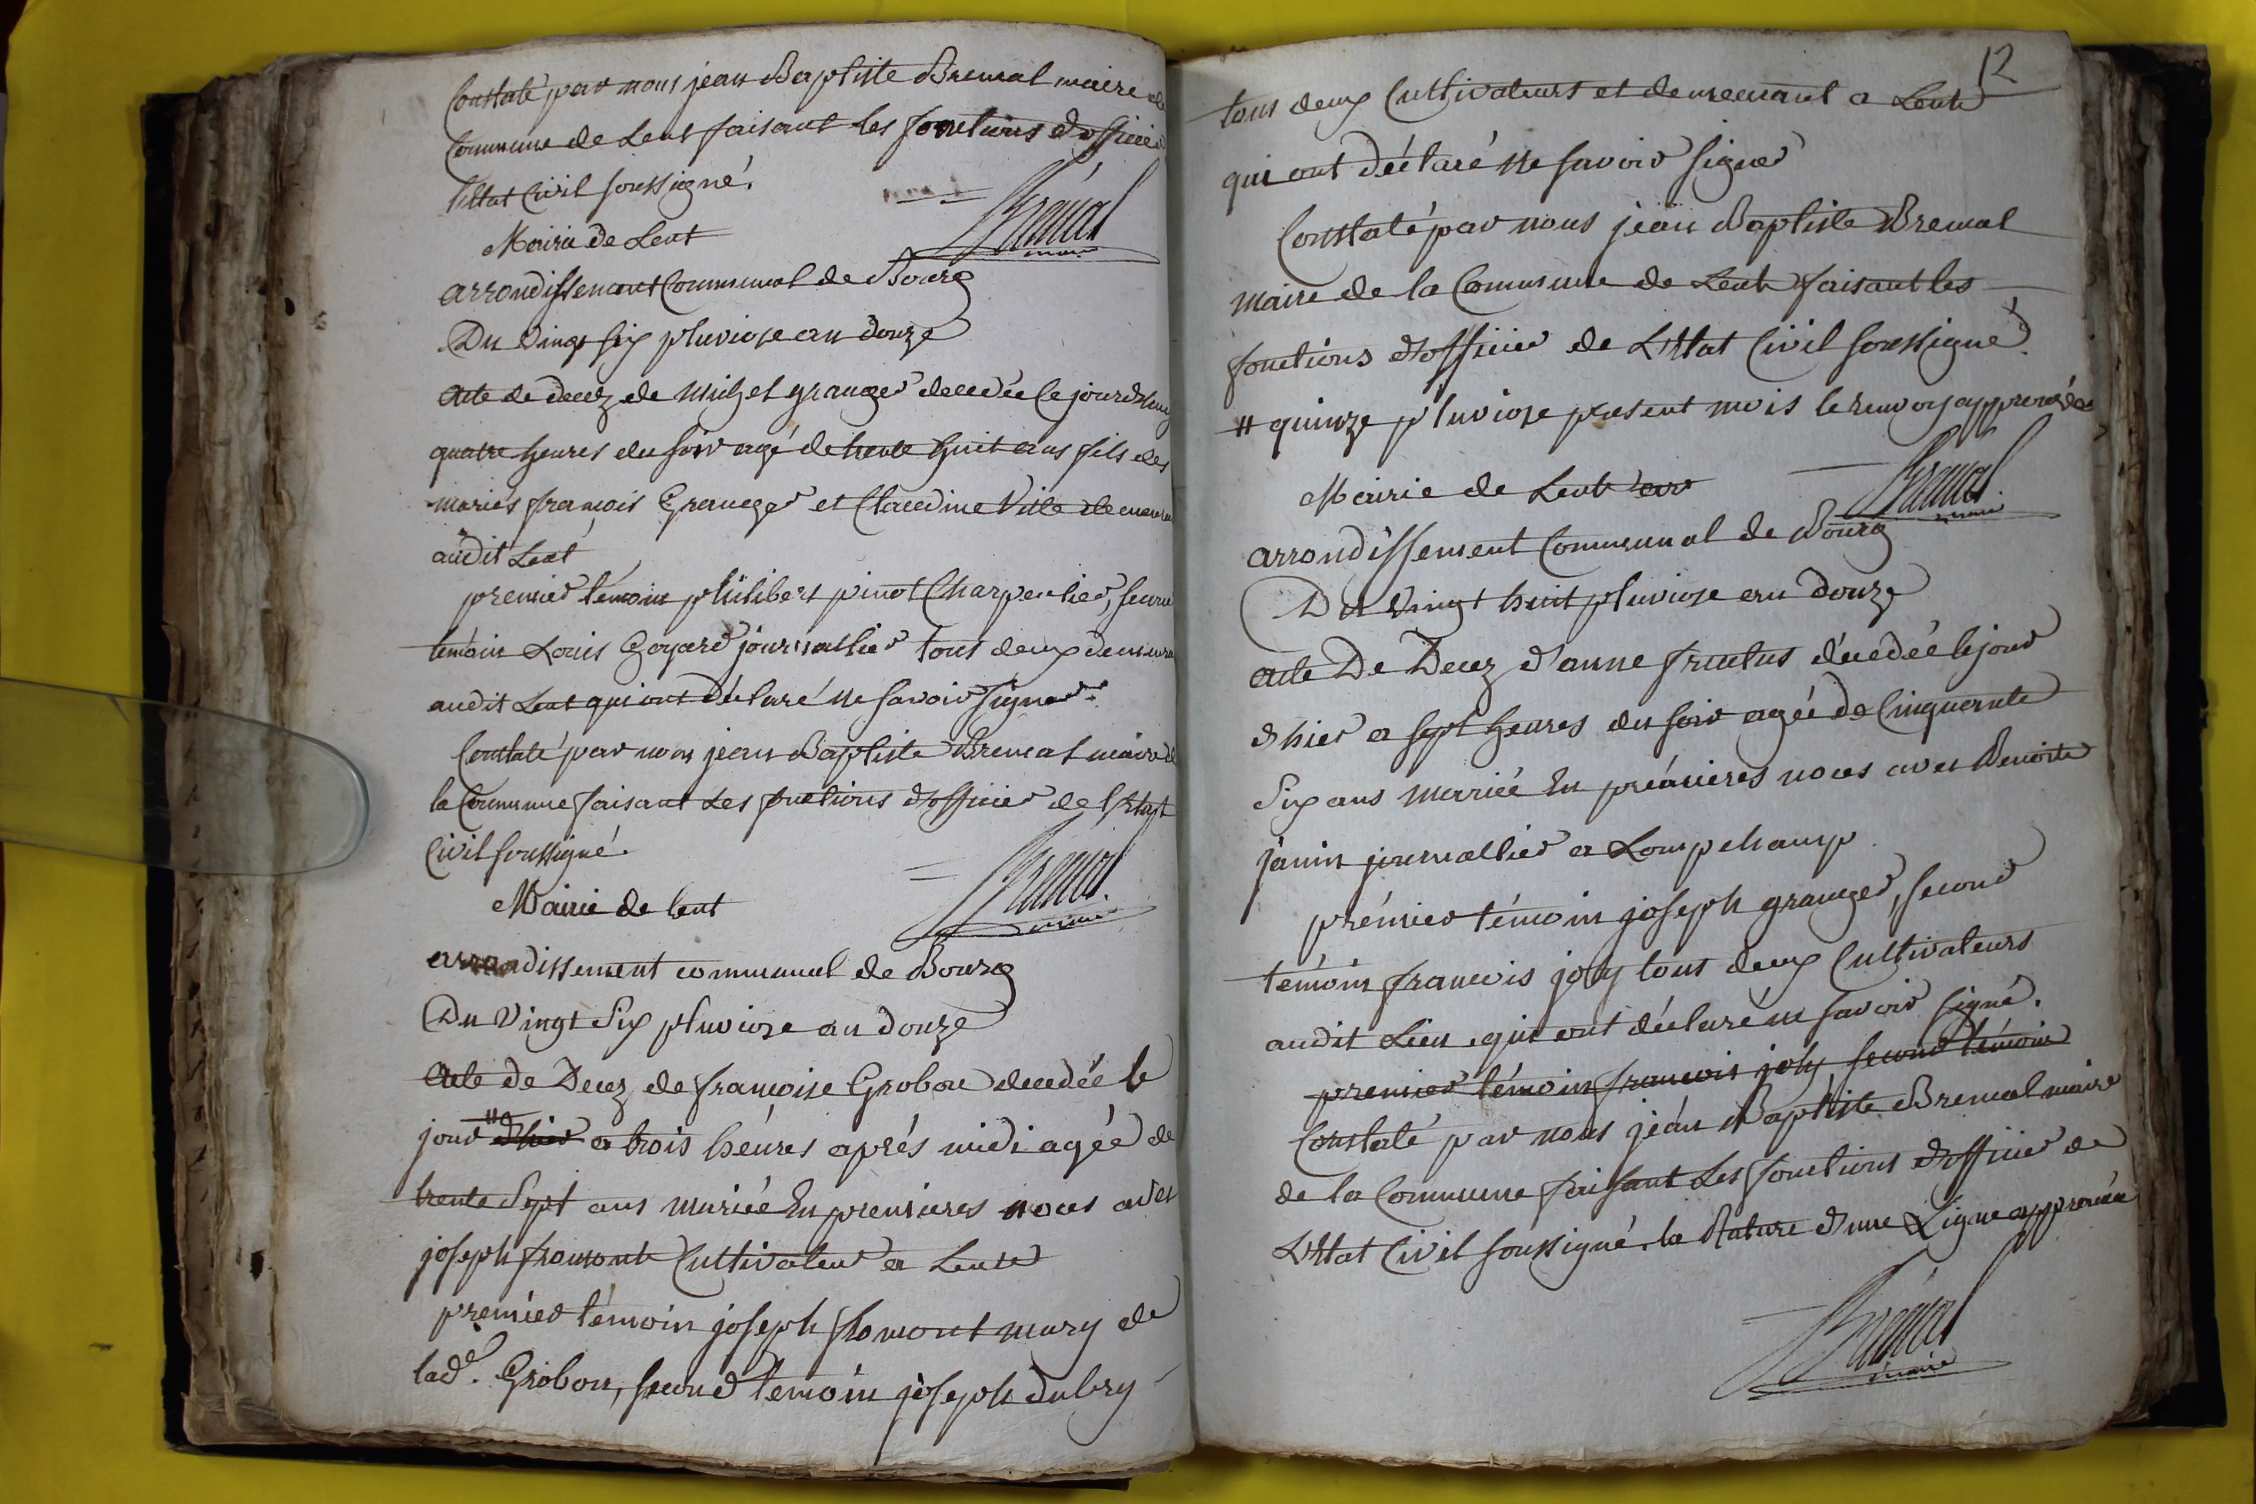 Constaté par nous jean Baptiste Bremal maire de
Commune de Lent faisant les fonctions d'officier
l'Etat Civil soussigné.
Bremal
maire
Mairie de Lent
arrondissement Communal de Bourg
Du vingt six pluviose an douze
Acte de decez de Michel granger decedée le jourdhuy
quatre heures du soir agé de trente huit ans fils des
mariés françois Granger et Claudine Ville
audit Lent
premier témoin philibert pinot Charpentier,
témoin Louis Goyard journallier tous deux
audit Lent qui ont déclaré ne savoir signer.
Constaté par nous jean Baptiste Bremal maire de
la Commune faisant les fonctions d'officier de l'Etat
Civil soussigné.
Bremal
maire
Mairie de lent
arrondissement communal de Bourg
Du vingt Six pluviose an douze
Acte de Decez de françoise Grobon decedée le
jour # d'hier a trois héures aprés midi agée de
trente Sept ans mariée En premieres noces avec
joseph fromont Cultivateur a Lent
premier témoin joseph fromont mary de
lade. Grobon, second témoin joseph dubry
12
tous deux Cultivateurs et demeurant a Lent
qui ont déclaré ne savoir signer
Constaté par nous jean Baptiste Bremal
maire de la Commune de Lent faisant les
fonctions d'officier de L'Etat Civil soussigné.
# quinze pluviose present mois le renvoy approuvé
Bremal
maire
Mairie de Lent
arrondissement Communal de Bourg
Du vingt huit pluviose an douze
Acte De Decez d'anne décédée le jour
d'hier a sept heures du soir agée de Cinquante
Six ans mariée En premieres noces avec Benoit
janin journallier a Longchamp
prémier témoin joseph granger, second
témoin francois joly tous deux Cultivateurs
audit Lieu qui ont déclaré ne savoir signé.
premier témoin francois joly second témoin
Constaté par nous jéan Baptiste Bremal maire
de la Commune faisant Les fonctions d'officier de
L'Etat Civil soussigné. la Rature d'une Ligne approuvée
Bremal
maire